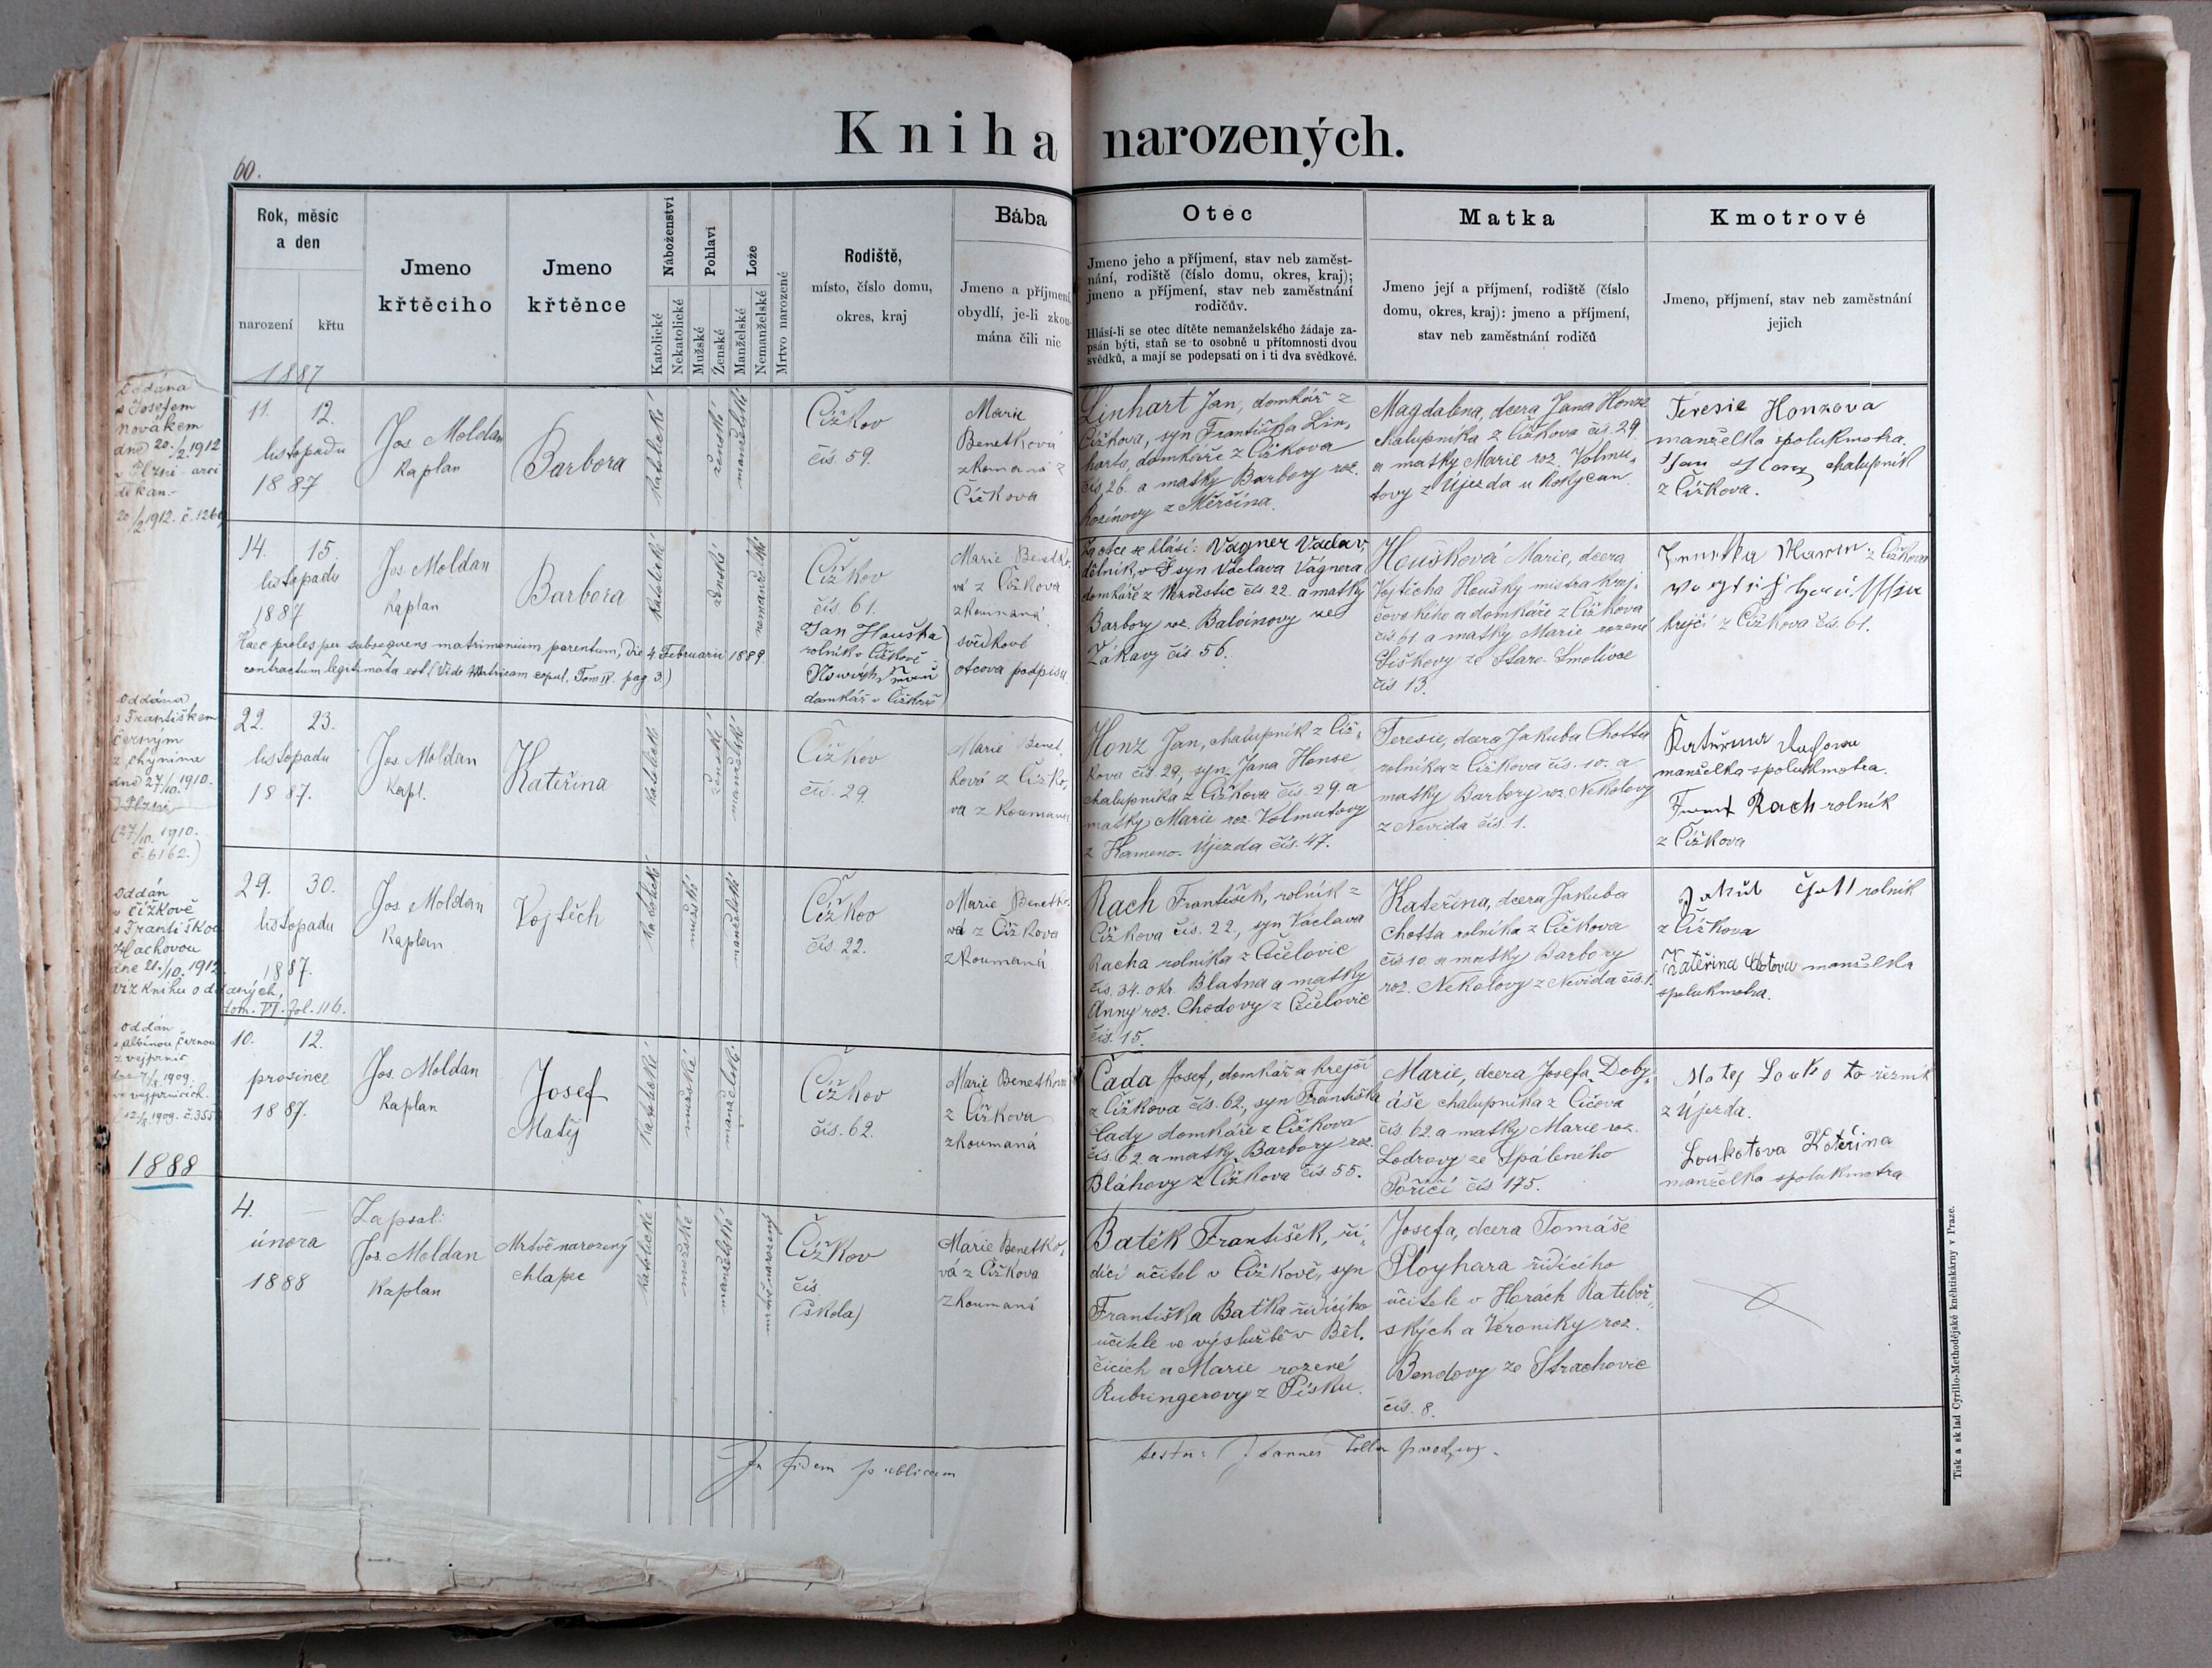 60.
Kniha narozených.
Rok, měsíc
a den
narození
křtu
Jmeno
křtěcího
Jmeno
křtěnce
Náboženství
Katolické
Nekatolické
Pohlaví
Mužské
Ženské
Lože
Manželské
Nemanželské
Mrtvo narozené
Rodiště,
místo, číslo domu,
okres, kraj
Bába
Jmeno a příjmení,
obydlí, je-li zkou-
mána čili nic
Otec
Jmeno jeho a příjmení, stav neb zaměst-
nání, rodiště (číslo domu, okres, kraj);
jmeno a příjmení, stav neb zaměstnání
rodičův.
Hlásí-li se otec dítěte nemanželského žádaje za-
psán býti, staň se to osobně u přítomnosti dvou
svědků, a mají se podepsati on i ti dva svědkové.
Matka
Jmeno její a příjmení, rodiště (číslo
domu, okres, kraj): jmeno a příjmení,
stav neb zaměstnání rodičů
Kmotrové
Jmeno, příjmení, stav neb zaměstnání
jejich
1887
Oddána
s Josefem
Novákem
dne 20./2.1912
v Plzni - arci
děkan.-
20/2.1912. č.126
11. 12.
listopadu
1887
Jos. Moldan
Kaplan
Barbora
katolické
ženské
manželské
Čížkov
čís. 59.
Marie
Benetková
zkoumaná z
Čížkova
Linhart Jan, domkář z
Čížkova, syn Františka Lin,
harta, domkáře z Čížkova
čís. 26. a matky Barbory roz.
Rosínovy z Měrčína.
Magdalena, dcera Jana Honze
chalupníka z Čížkova čís. 29.
a matky Marie roz. Volmu,
tovy z Újezda u Rokycan
Teresie Honzova
manželka spolukmotra.
Jan Honz chalupník
z Čížkova.
14. 15.
listopadu
1887
Jos. Moldan
Kaplan
Barbora
katolické
ženské
nemanželské
Čížkov
čís 61.
Marie Benetko,
vá z Čížkova
zkoumaná.
Za otce se hlásí: Vagner Václav,
dělník, syn Václava Vágnera
domkáře z čís 22. a matky
Barbory roz. Balounovy ze
Žákavy čís. 56.
Houšková Marie, dcera
Vojtěcha Houšky mistra krej,
čovského a domkáře z Čížkova
čís. 61. a matky Marie rozené
Šiškovy ze Staro. Smolivce
čís 13.
z Čížkova
krejčí z Čížkova čís. 61.
Haec proles per subsequens matrimonium parentum, die 4. Februarii 1889.
contractum legitimata est (Vide Matricam copul. Tom IV. pag 3.)
Jan Houška
rolník v Čížkově
domkář v Čížkově
svědkové
otcova podpisu
Oddána
s Františkem
Černým
z Chynína
dne 27/10. 1910.
v Plzni
(27/10. 1910.
č. 6162.)
22. 23.
listopadu
1887.
Jos. Moldan
Kapl.
Kateřina
katolické
ženské
manželské
Čížkov
čís. 29.
Marie Benet,
ková z Čížko,
va zkoumaná
Honz Jan, chalupník z Číž,
kova čís. 29, syn Jana Honse
chalupníka z Čížkova čís. 29. a
matky Marie roz. Volmutovy
z Kameno. Újezda čís. 47.
Teresie, dcera Jakuba Chotta
rolníka z Čížkova čís. 10. a
matky Barbory roz. Nekolovy
z Nevida čís. 1.
Kateřina Rachova
manželka spolukmotra.
Frant Rach rolník
z Čížkova
Oddán
v Čížkově
s Františkou
Hachovou
dne 21./10. 1912.
viz knihu oddaných,
tom. VI. fol. 116.
29. 30.
listopadu
1887.
Jos. Moldan
Kaplan
Vojtěch
katolické
mužské
manželské
Čížkov
čís. 22.
Marie Benetko,
vá z Čížkova
zkoumaná
Rach František, rolník z
Čížkova čís. 22., syn Václava
Racha rolníka z Čečelovic
čís. 34. okr. Blatna a matky
Anny roz. Chodovy z Čečelovic
čís. 15.
Kateřina, dcera Jakuba
Chotta rolníka z Čížkova
čís 10. a matky Barbory
roz. Nekolovy z Nevida čís. 1.
Jakub rolník
z Čížkova
Kateřina manželka
spolukmotra.
Oddán
s Albínou Černou
z Vejprnic
dne 7/8. 1909.
ve Vejprnicích.
12./8. 1909. č. 355
10. 12.
prosince
1887.
Jos. Moldan
Kaplan
Josef
Matěj
katolické
mužské
manželské
Čížkov
čís. 62.
Marie Benetková
z Čížkova
zkoumaná
Čada Josef, domkář a krejčí
z Čížkova čís. 62., syn Františka
Čady domkáře z Čížkova
čís. 62. a matky Barbory roz.
Bláhovy z Čížkova čís 55.
Marie, dcera Josefa Doby,
áše chalupníka z Čičova
čís. 62. a matky Marie roz.
Lodrovy ze Spáleného
Poříčí čís 175.
Matej Loukota řezník
z Újezda.
Loukotova Kateřina
manželka spolukmotra
1888
4.
února
1888
Zapsal:
Jos. Moldan
Kaplan
Mrtvě narozený
chlapec
katolické
mužské
manželské
mrtvě narozený
Čížkov
čís.
(škola)
Marie Benetko,
vá z Čížkova
zkoumaná
Baťěk František, ří,
dící učitel v Čížkově, syn
Františka Baťka řídícího
učitele ve výslužbě v Běl,
čicích a Marie rozené
Rubringerovy z Písku.
Josefa, dcera Tomáše
Ployhara řídícího
učitele v Horách Ratiboř,
ských a Veroniky roz.
Bendovy ze Strachovic
čís. 8.
In fidem publicam
testor: Joannes
Tisk a sklad Cyrillo-Methodějské kněhtiskárny v Praze.